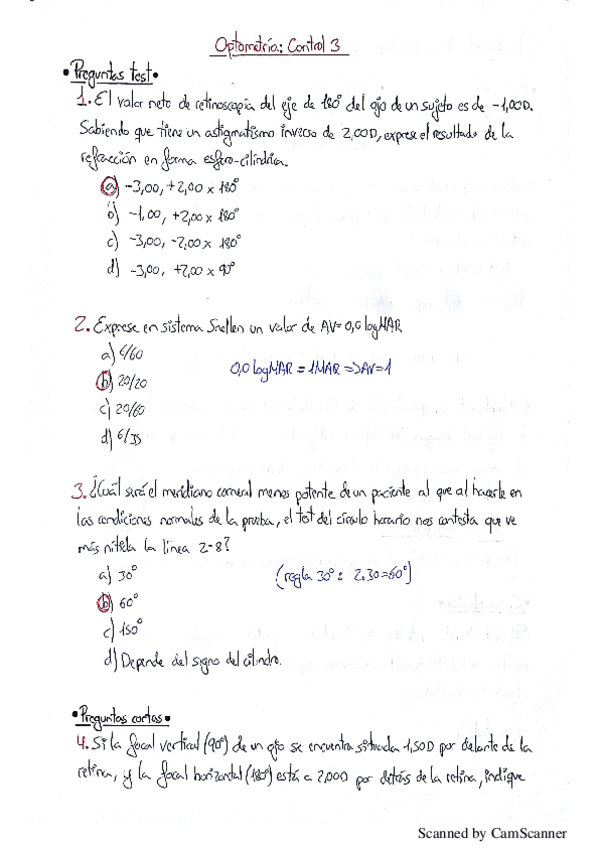 Optometría: Control 3
• Preguntas test •
1. El valor neto de retinoscopia del eje de 180° del ojo de un sujeto es de -1,00D.
Sabiendo que tiene un astigmatismo inverso de 2,00D, exprese el resultado de la
refracción en forma esfero-cilíndrica.
a) -3,00, +2,00 x 180°
b) -1,00, +2,00 x 180°
c) -3,00, -2,00 x 180°
d) -3,00, +2,00 x 90°
2. Exprese en sistema Snellen un valor de AV= 0,0 logMAR
a) 6/60
b) 20/20
0,0 logMAR = 1MAR => AV=1
c) 20/60
d) 6/35
3. ¿Cuál será el meridiano corneal menos potente de un paciente al que al hacerle en
las condiciones normales de la prueba, el test del círculo horario nos contesta que ve
más nítida la línea 2-8?
a) 30°
(regla 30° : 2.30=60°)
b) 60°
c) 150°
d) Depende del signo del cilindro.
• Preguntas cortas •
4. Si la focal vertical (90°) de un ojo se encuentra situada 1,50D por delante de la
retina, y la focal horizontal (180°) está a 2,00D por detrás de la retina, indique
Scanned by CamScanner